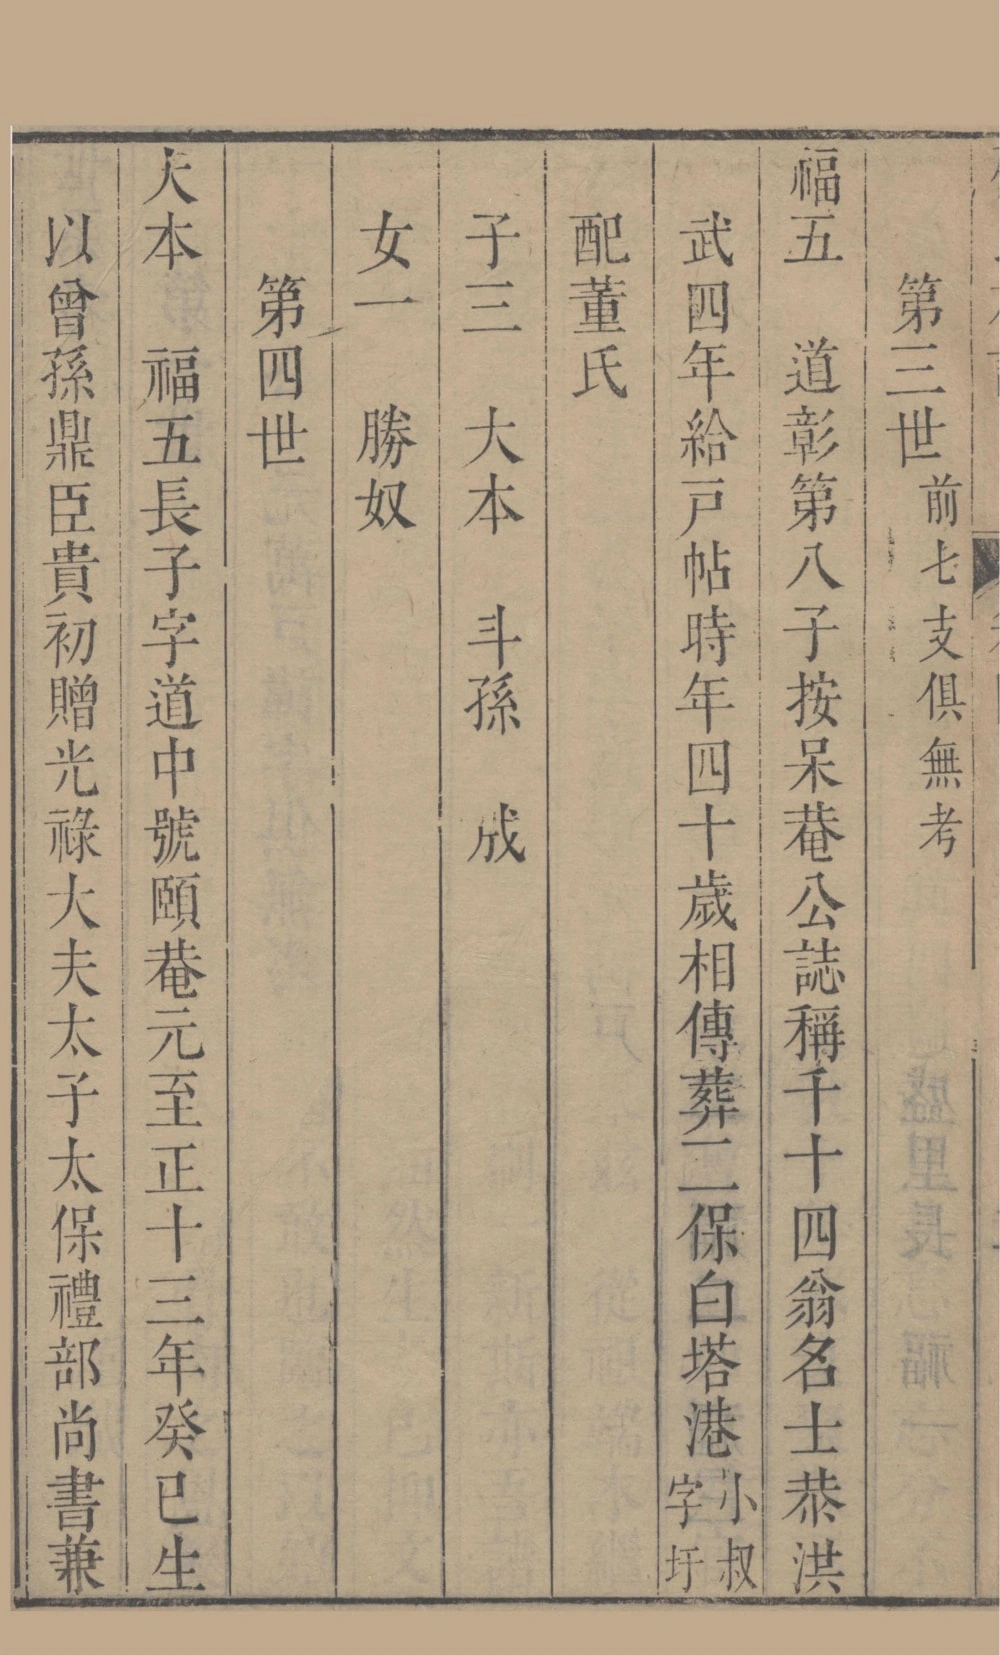 第三世 前七支俱無考
福五 道彰第八子按呆菴公誌稱千十四翁名士恭洪
武四年給戸帖時年四十歲相傳葬二保白塔港 小叔字圩
配董氏
子三 大本 斗孫 成
女一 勝奴
第四世
大本 福五長子字道中號頤菴元至正十三年癸巳生
以曾孫鼎臣貴初贈光祿大夫太子太保禮部尚書兼